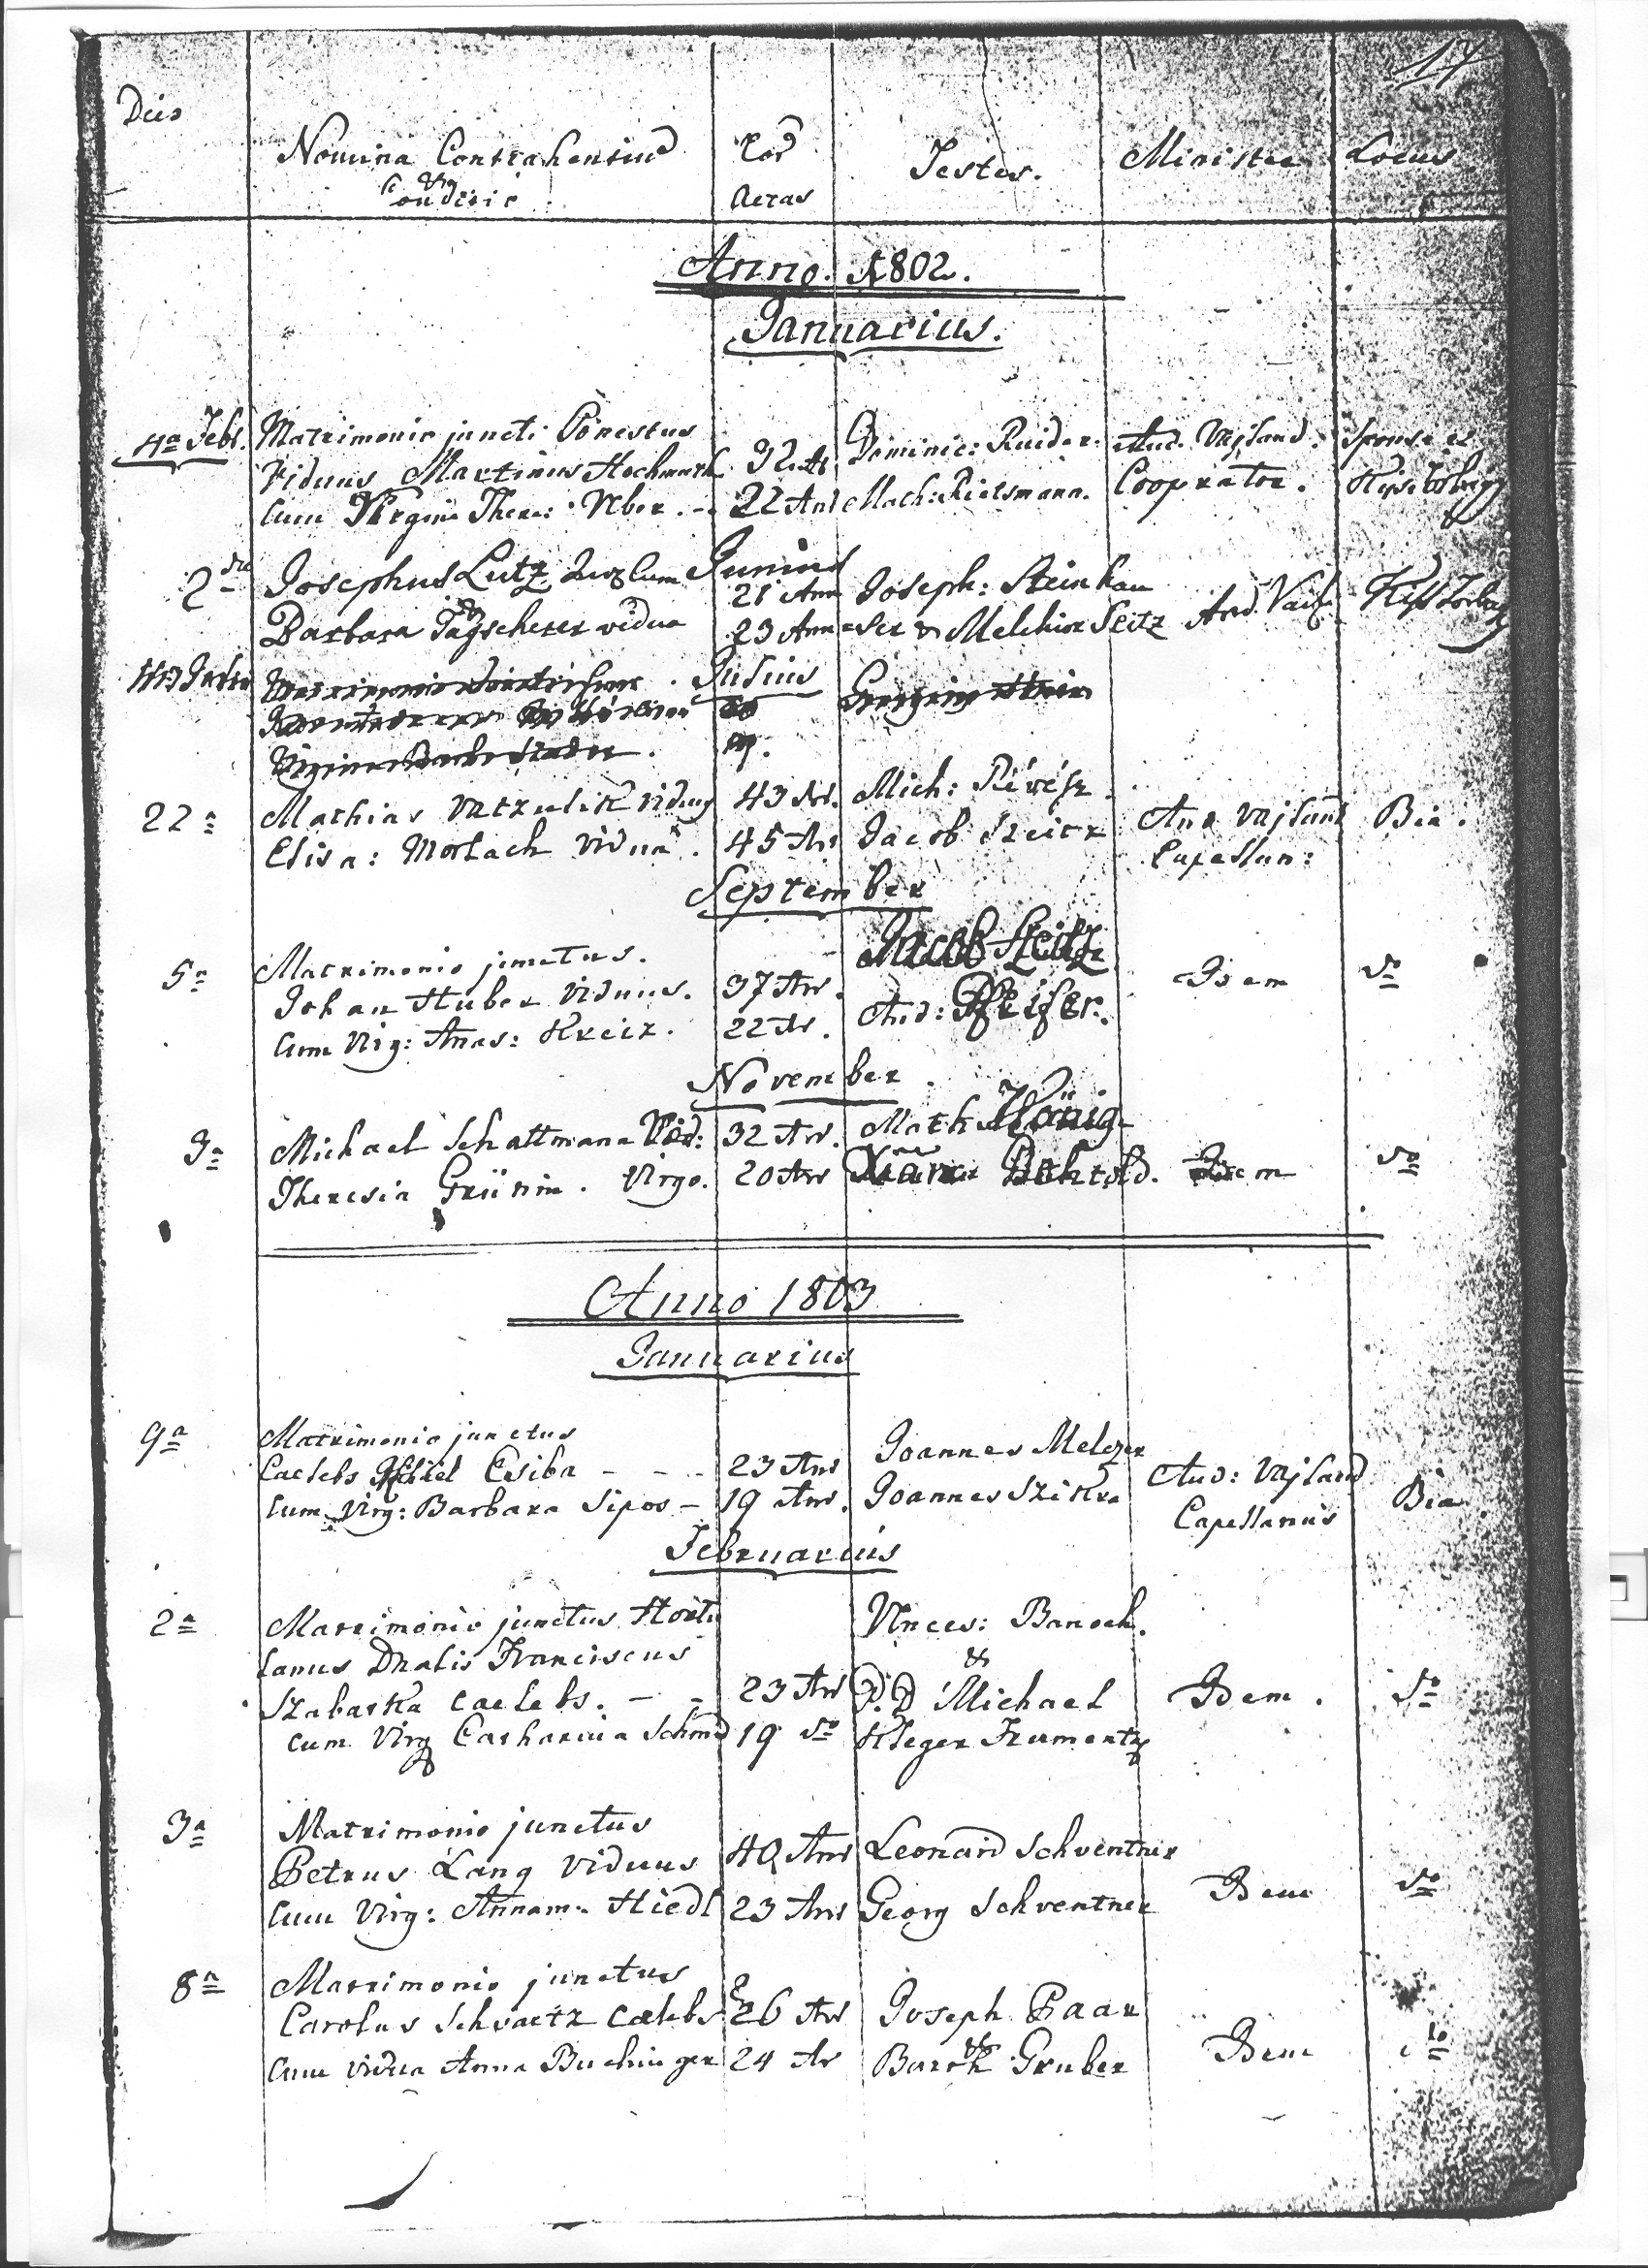 17
Dies
Nomina Contrahentium
Conditio
Eor
Aetas
Testes.
Minister
Locus
Anno. 1802.
Januarius.
4a Feb.
Matrimonio juncti Honestus
Viduus Martinus Hochmuth
cum Virgine There: Uber. -
32 An
22 Ans
Dominic: Ruider.
Math: Rietsmann.
And. Vajland.
Cooprator.
Sponsa ex
2da
Junius
Josephus Lutz Juv. cum
Barbara Tagscherer vidua
21 Ann
23 Ann
Joseph: Steinhau
=ser & Melchior Seitz
And. Vajl.
Julius
22a
Mathias Vatzulik viduus
Elisa: Morbach vidua.
43 An.
45 An
Mich: Révész
Jacob Szeitz
And Vajland
Capellan:
Bia.
September
5a
Matrimonio junctus.
Johan Huber Viduus.
cum Virg: Anas: Kreiz.
37 An.
22 An.
Jacob Seitz
And: Pfeifer.
Idem
do
November.
3a
Michael Schattmann Vid:
Theresia Grünin. Virgo.
32 An.
20 An
Math König
Bohrold.
Idem
do
Anno 1803
Januarius
9a
Matrimonio junctus
Caelebs Csiba - - -
cum Virg: Barbara Sipos -
23 Ans
19 Ans.
Joannes Melczer
Joannes Szikra
And: Vajland
Capellanus
Bia
Februarius
2a
Matrimonio junctus Hortu
lanus Dnalis Franciscus
Szabatka caelebs. - -
cum Virg Catharina Schmid
23 An
19 do
Vnces: Banoch.
&
P. D Michael
Kleger Frumentz
Idem.
do
3a
Matrimonio junctus
Petrus Lang viduus
cum Virg: Annam. Hiedl
40 Ans
23 Ans
Leonard Schventner
Georg Schventner
Idem
do
8a
Matrimonio junctus
Carolus Schvartz caelebs
cum vidua Anna Buchinger
26 An
24 An
Joseph Paar
&
Barth Gruber
Idem
do